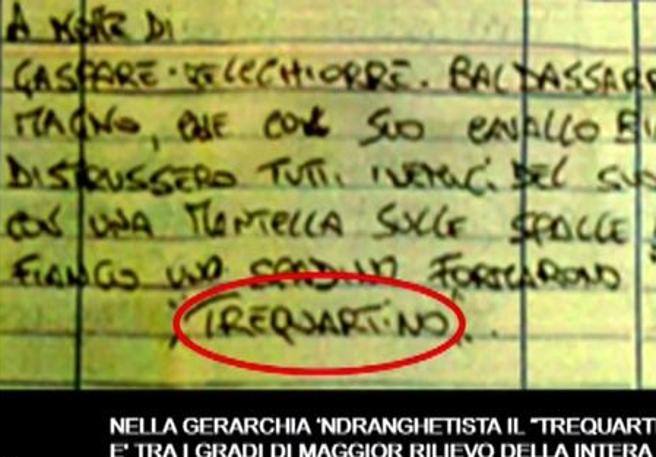 A NOME DI
GASPARE. MELCHIORRE. BALDASSARR
MAGNO, CHE CON SUO CAVALLO BI
DISTRUSSERO TUTTI I NEMICI DEL SUO
CON UNA MANTELLA SULLE SPALLE
FIANCO UNO SPADINO FORMARONO
"TREQUARTINO"..
NELLA GERARCHIA 'NDRANGHETISTA IL "TREQUART
E' TRA I GRADI DI MAGGIOR RILIEVO DELLA INTERA